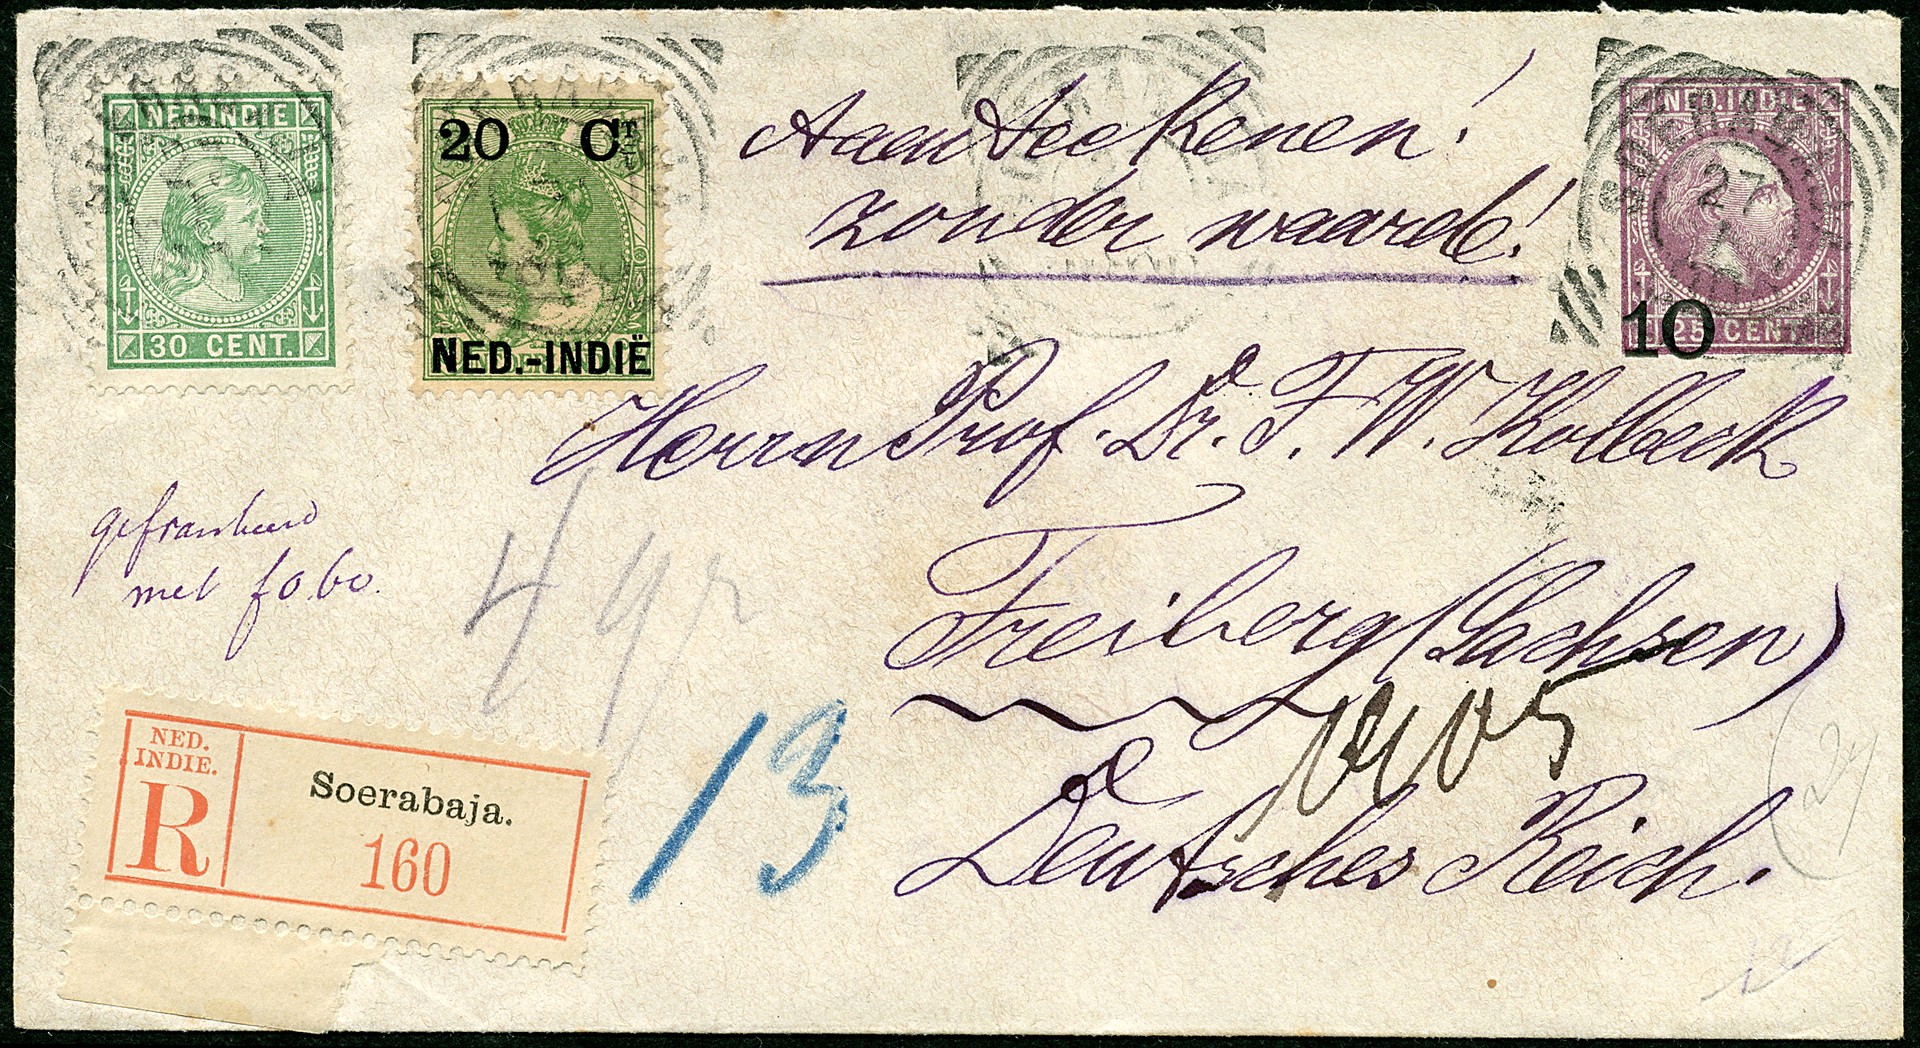 NED. INDIE
30 CENT.
20 CT
NED.-INDIË
Aanteekenen!
zonder waarde!
NED. INDIE
SOERABAJA
27
1
10
25 CENT
Herrn Prof. Dr. F. W. Kolbeck
Freiberg (Sachsen)
Deutsches Reich.
gefrankeerd
met f 0.60.
4 gr
13
NED.
INDIE.
R
Soerabaja.
160